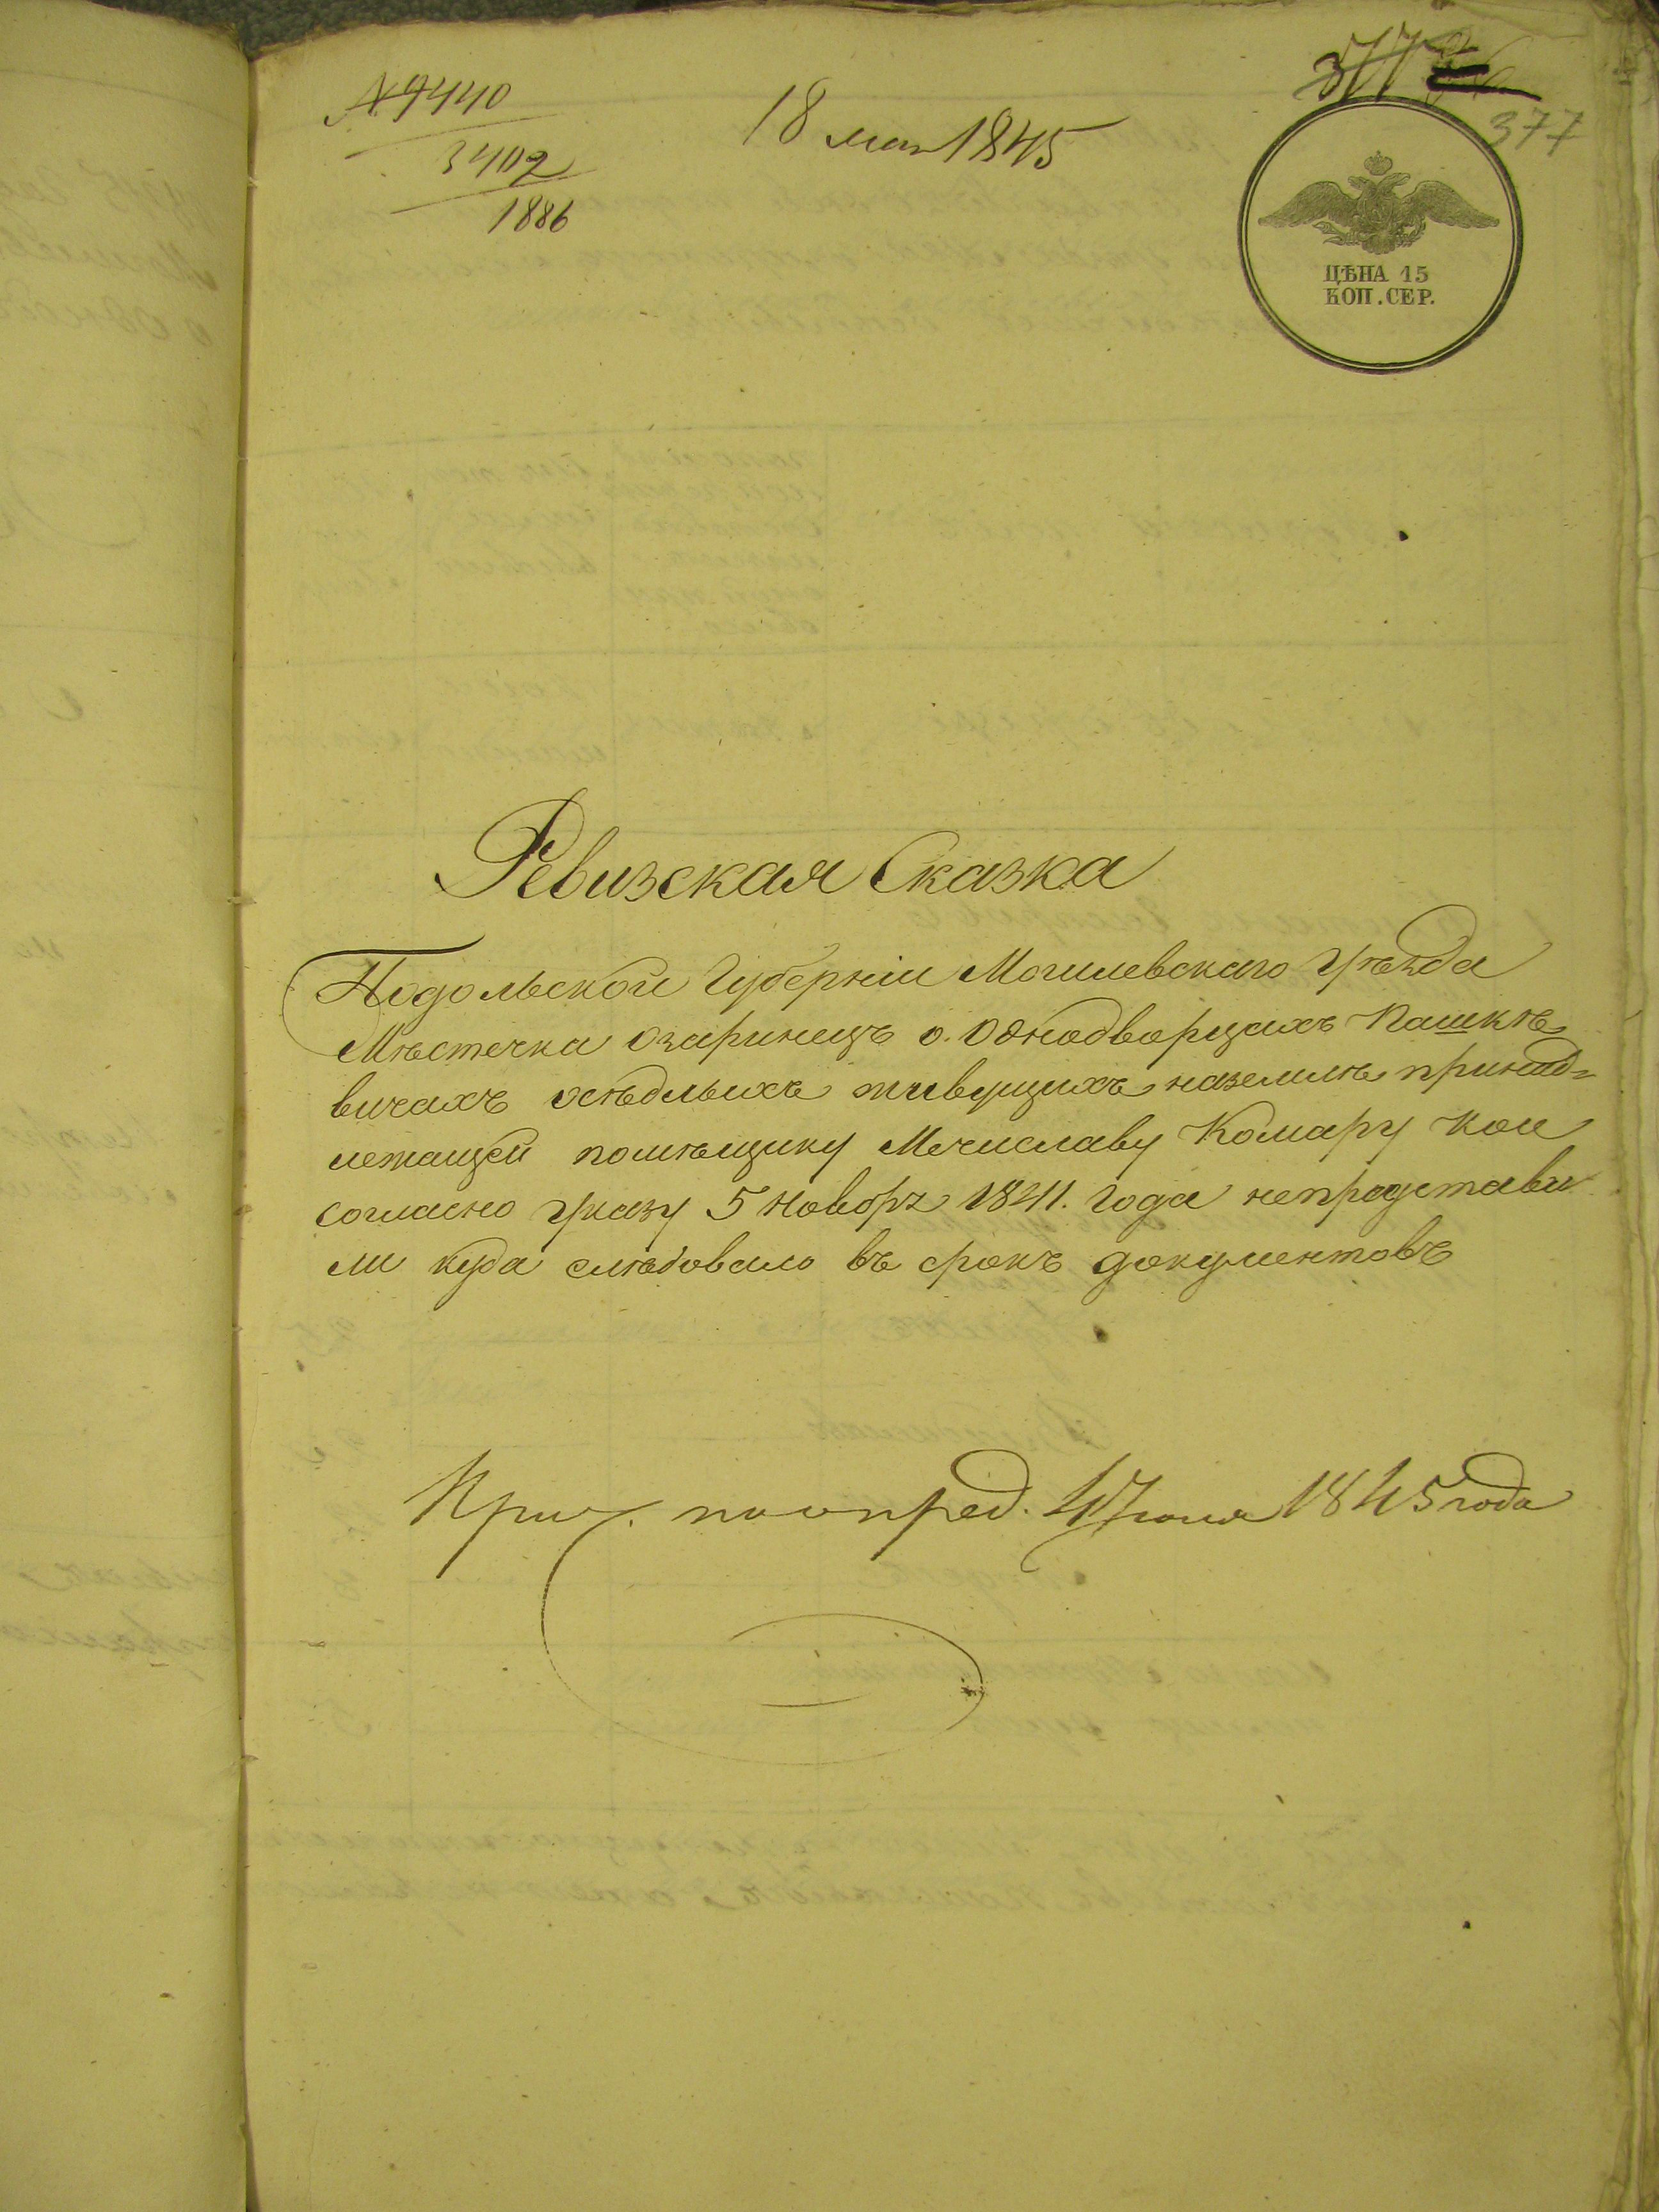 №9440
3402
1886
18 мая 1845
377
377
ЦѢНА 15
КОП. СЕР.
Ревизская Сказка
Подольской Губерніи Могилевскаго Уѣзда
Мѣстечка Озаринецъ о. Однодворцахъ Пашкѣ
вичахъ осѣдлыхъ живущихъ наземлѣ принад=
лежащей помѣщику Мечиславу Комару кои
согласно указу 5 Ноября 1841. года непредстави
ли куда слѣдовало въ срокъ документовъ
поопред. Іюня 1845 года